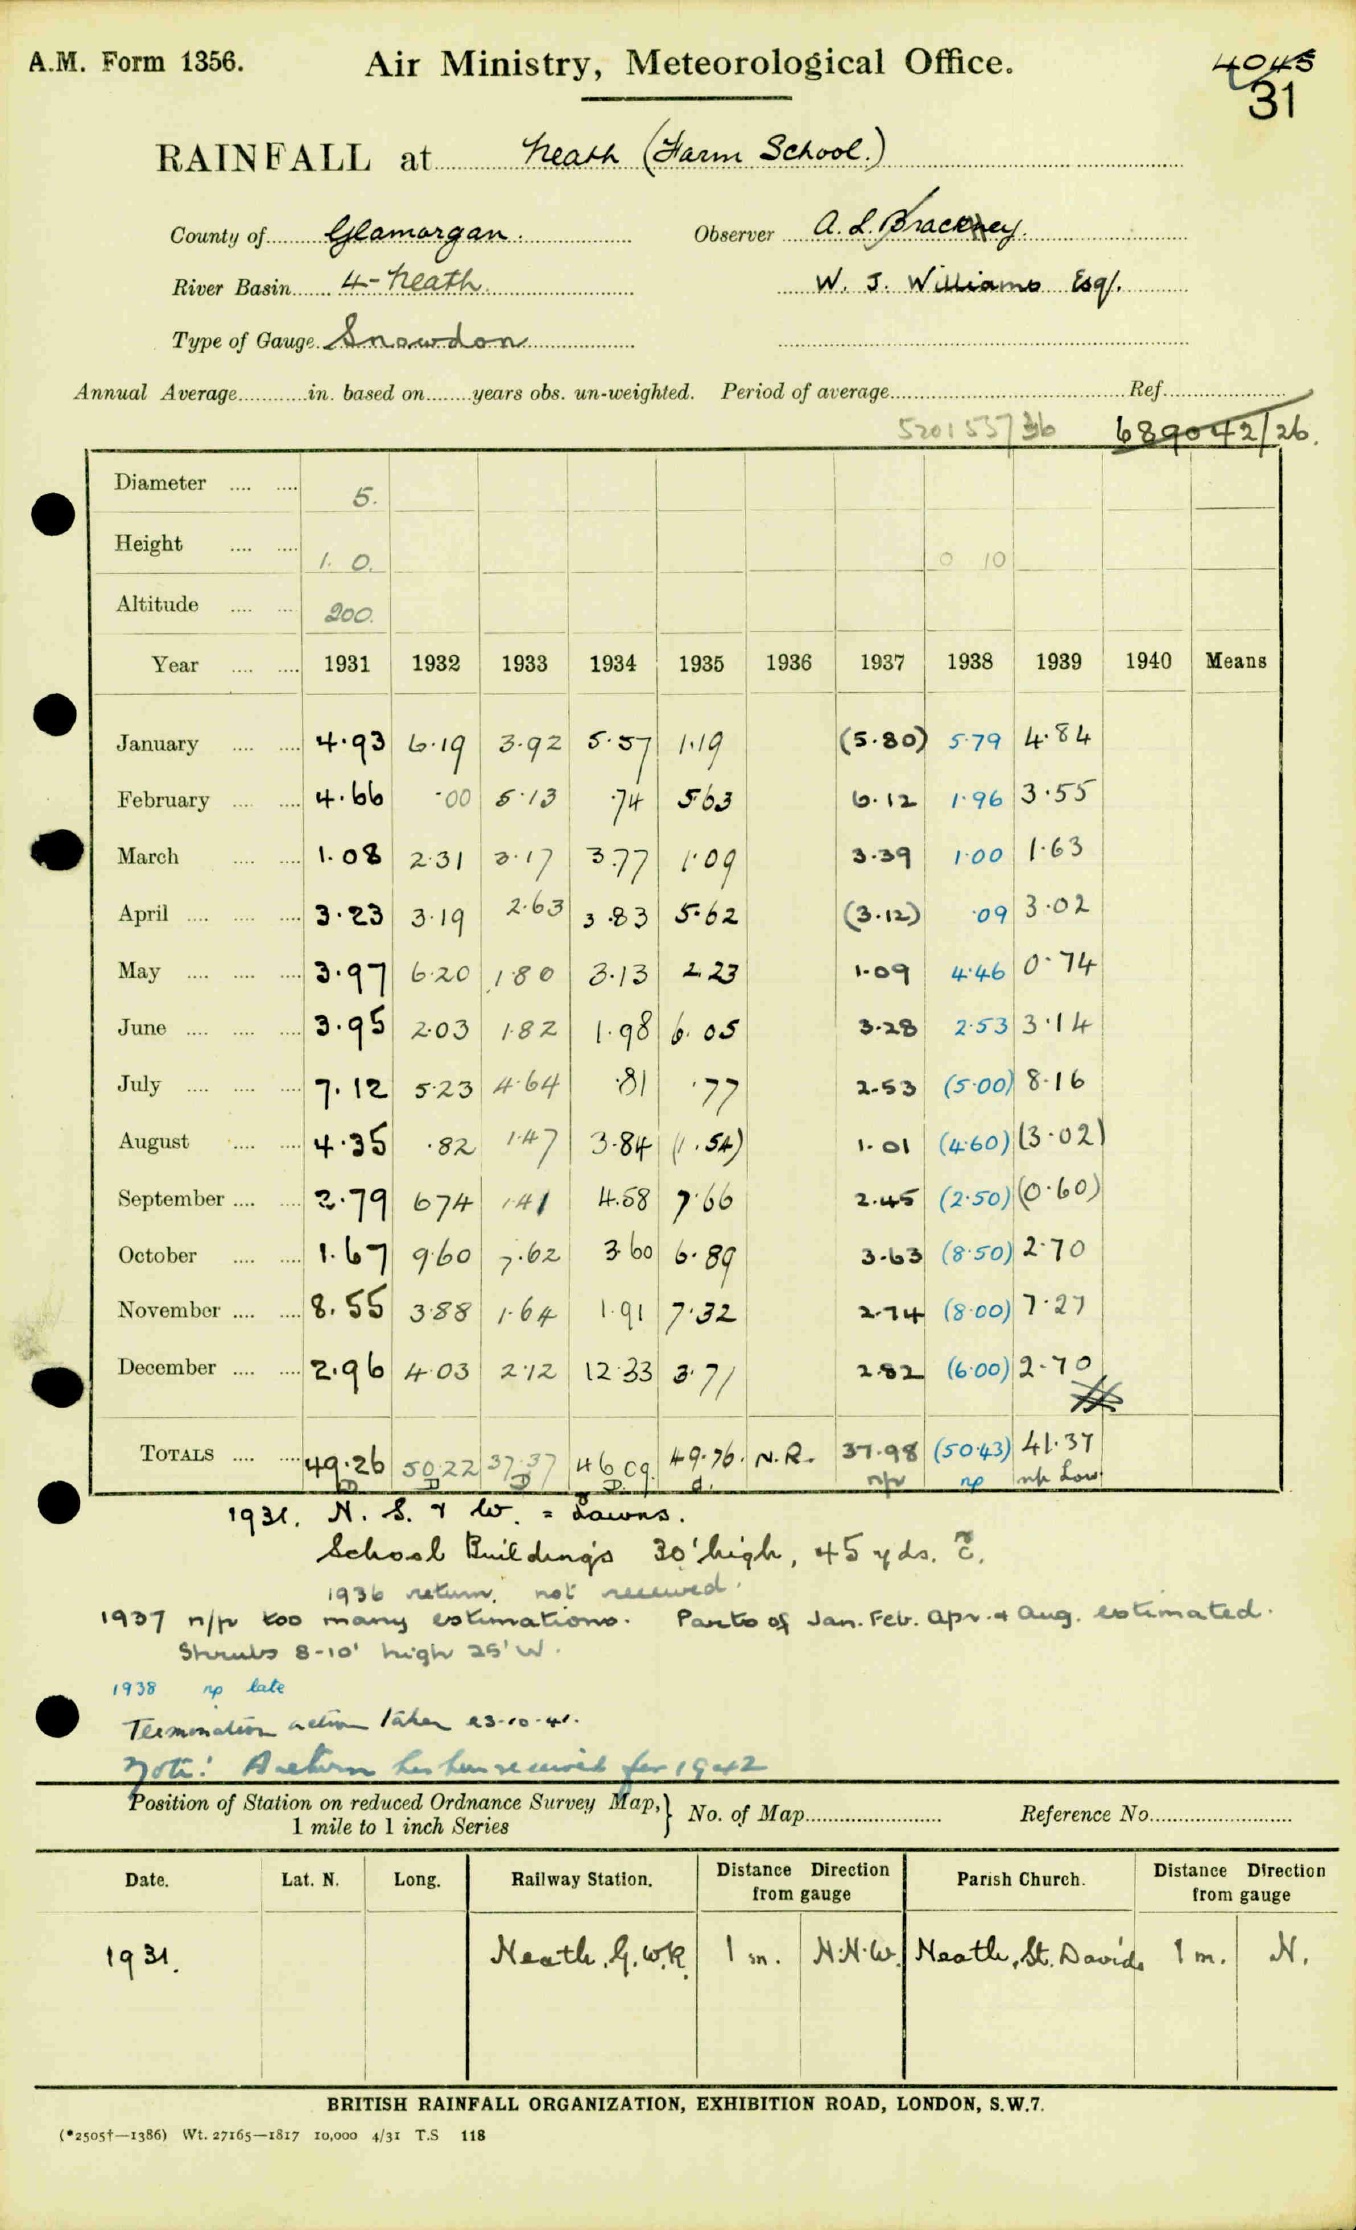 A.M. Form 1356. Air Ministry, Meteorological Office. 4045
31
RAINFALL at Neath (Farm School.)
County of Glamorgan. Observer A. L. Brackney.
River Basin 4 - Neath W. J. Williams Esq.
Type of Gauge Snowdon
Annual Average............in. based on........years obs. un-weighted. Period of average.................... Ref....................
520155/36 689042/26.
Diameter .... .... 5.
Height .... .... 1. 0. 0 10
Altitude .... .... 200.
Year .... .... 1931 1932 1933 1934 1935 1936 1937 1938 1939 1940 Means
January .... .... 4.93 6.19 3.92 5.57 1.19 (5.80) 5.79 4.84
February .... .... 4.66 .00 5.13 .74 5.63 6.12 1.96 3.55
March .... .... 1.08 2.31 3.17 3.77 1.09 3.39 1.00 1.63
April .... .... .... 3.23 3.19 2.63 3.83 5.62 (3.12) .09 3.02
May .... .... .... 3.97 6.20 1.80 3.13 2.23 1.09 4.46 0.74
June .... .... .... 3.95 2.03 1.82 1.98 6.05 3.28 2.53 3.14
July .... .... .... 7.12 5.23 4.64 .81 .77 2.53 (5.00) 8.16
August .... .... 4.35 .82 1.47 3.84 (1.54) 1.01 (4.60) (3.02)
September .... .... 2.79 6.74 1.41 4.58 7.66 2.45 (2.50) (0.60)
October .... .... 1.67 9.60 7.62 3.60 6.89 3.63 (8.50) 2.70
November .... .... 8.55 3.88 1.64 1.91 7.32 2.74 (8.00) 7.27
December .... .... 2.96 4.03 2.12 12.33 3.71 2.82 (6.00) 2.70
TOTALS .... .... 49.26 50.22 37.37 46.09 49.76. N.R. 37.98 (50.43) 41.37
D D D D. d. n/p np np Low
1931. N. S. & W. = Lawns.
School Buildings 30' high, 45 yds. E.
1936 return not received.
1937 n/p too many estimations. Parts of Jan. Feb. Apr. & Aug. estimated.
Shrubs 8-10' high 25' W.
1938 np late
Termination action taken 23-10-41.
Note: A return has been received for 1942
Position of Station on reduced Ordnance Survey Map, } No. of Map.................... Reference No....................
1 mile to 1 inch Series
Date. Lat. N. Long. Railway Station. Distance Direction from gauge Parish Church. Distance Direction from gauge
1931. Neath, G.W.R. 1 m. N.N.W. Neath, St. Davids 1 m. N.
BRITISH RAINFALL ORGANIZATION, EXHIBITION ROAD, LONDON, S.W.7.
(*2505†—1386) Wt. 27165—1817 10,000 4/31 T.S 118